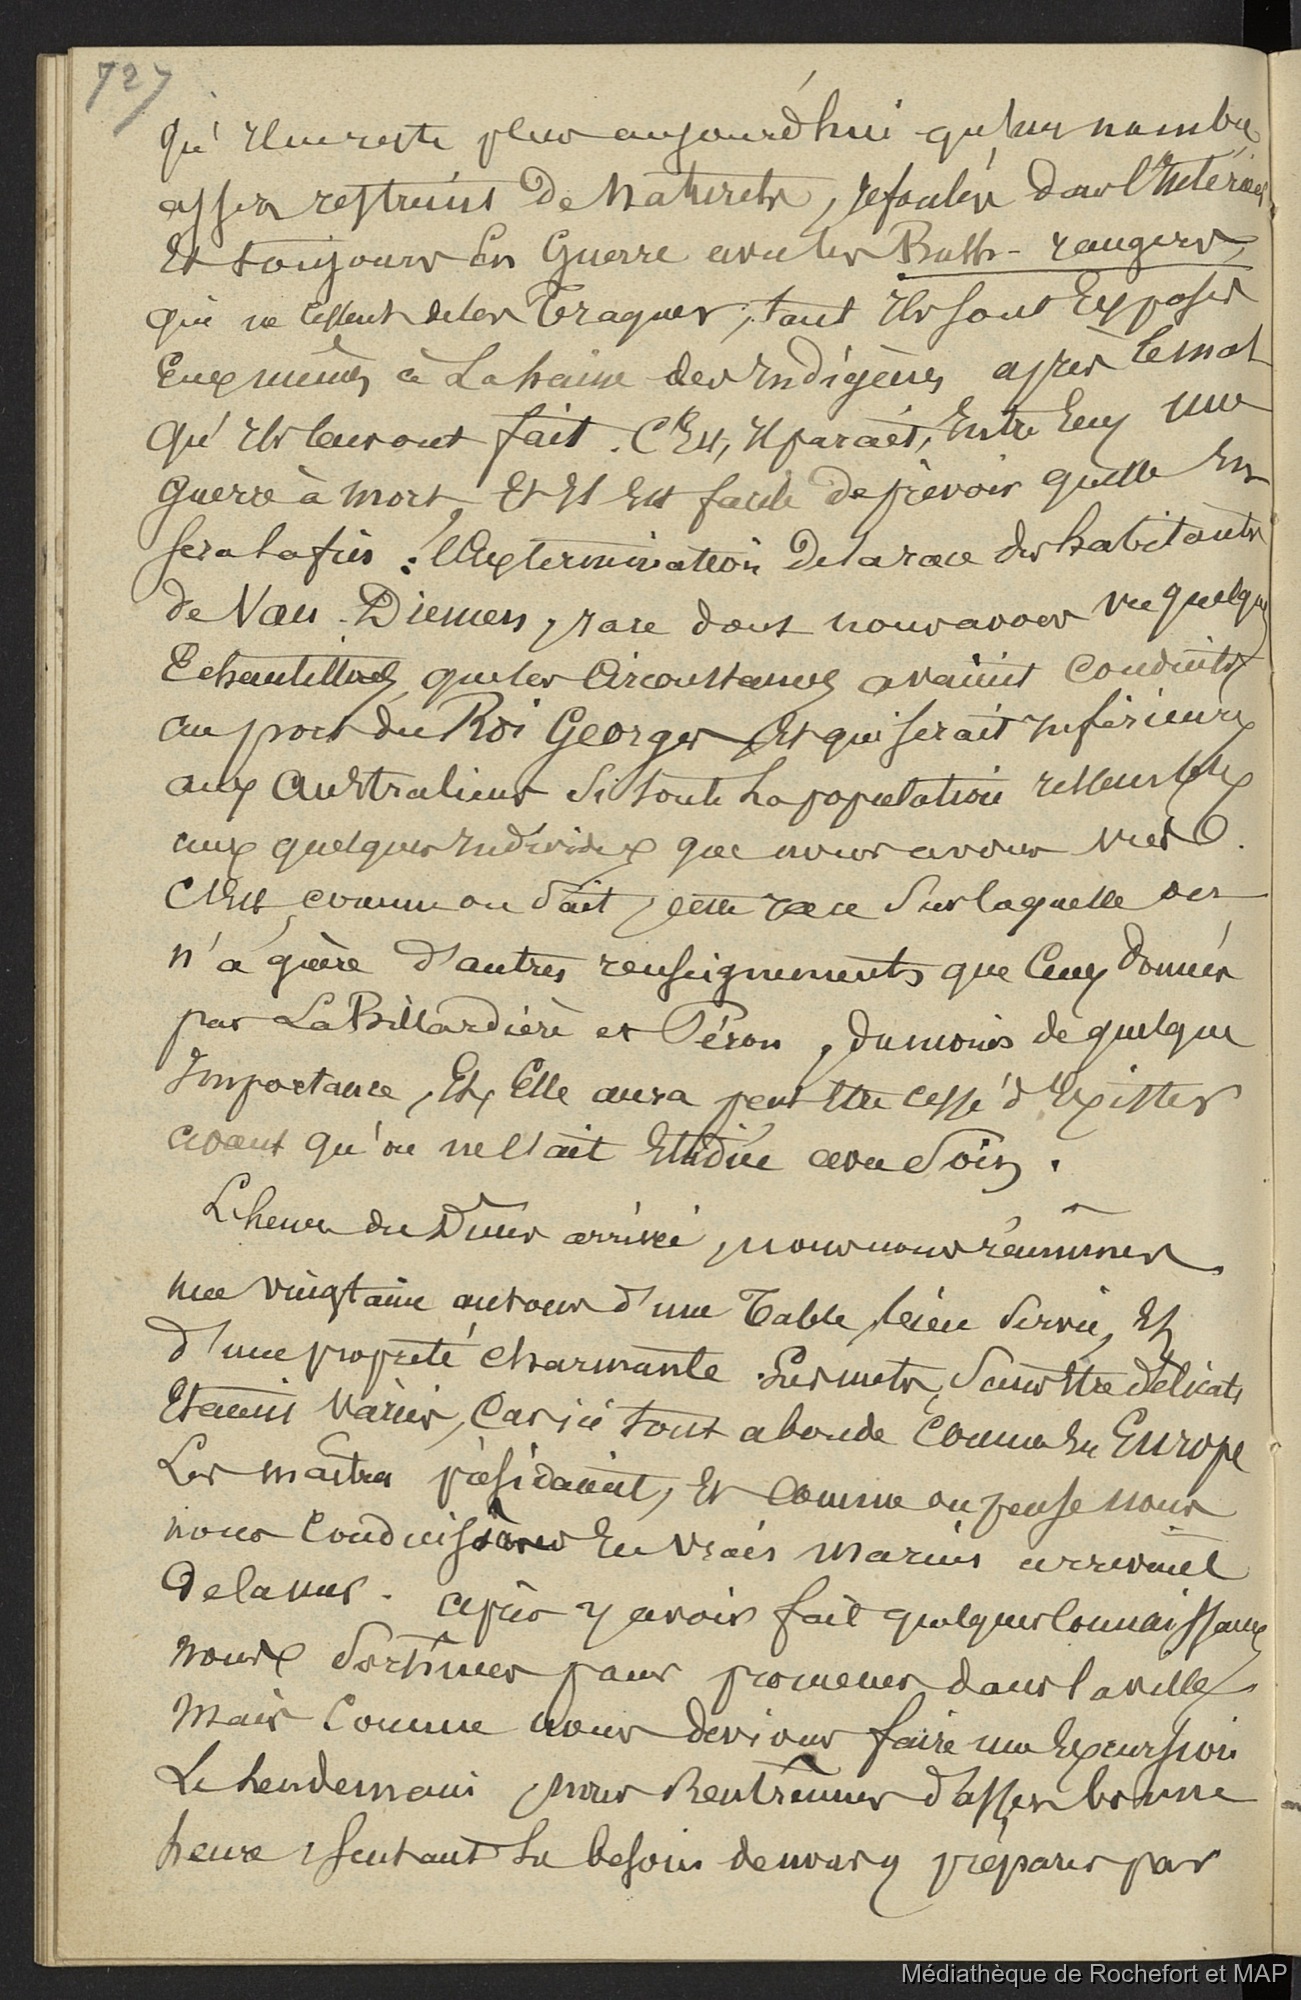 727
qu'il ne reste plus aujourd'hui qu'un nombre
assez restreint De Naturels, refoulés dans l'Intérieur
Et toujours En Guerre avec les Bush-rangers,
qui ne cessent de les Traquer, tant Ils sont Exposés
Eux mêmes à La haine des Indigènes après le mal
qu'Ils leur ont fait. C'Est, Il paraît, Entre Eux une
Guerre à mort, Et Il Est facile De prévoir quelle En
sera la fin : l'Extermination De la race des habitants
de Van-Diemen, race dont nous avons vu quelques
Echantillons, que les Circonstances avaient Conduits
au port du Roi Georges, Et qui serait Inférieure
aux Australiens si toute La population ressemble
aux quelques Individus que nous avons vus.
C'Est, comme on sait, cette race sur laquelle on
n'a guère d'autres renseignements que Ceux donnés
par La Billardière et Péron, du moins de quelque
Importance, Et, Elle aura peut Etre cessé d'Exister
avant qu'on ne l'ait Etudiée avec soin.
L'heure du Diner arrivée, nous nous réunîmes
une vingtaine autour d'une Table bien Servie, Et
d'une propreté charmante. Les mets, Sans Etre délicats
Etaient Variés, Car ici tout abonde Comme En Europe
Les maîtres présidaient, Et Comme on pense nous
nous Conduisîmes En vrais marins arrivant
De la mer. après y avoir fait quelques Connaissances
nous Sortîmes pour promener dans la ville
Mais Comme nous devions faire une Excursion
Le Lendemain, nous Rentrâmes d'assez bonne
heure, sentant Le besoin de nous y préparer par
Médiathèque de Rochefort et MAP